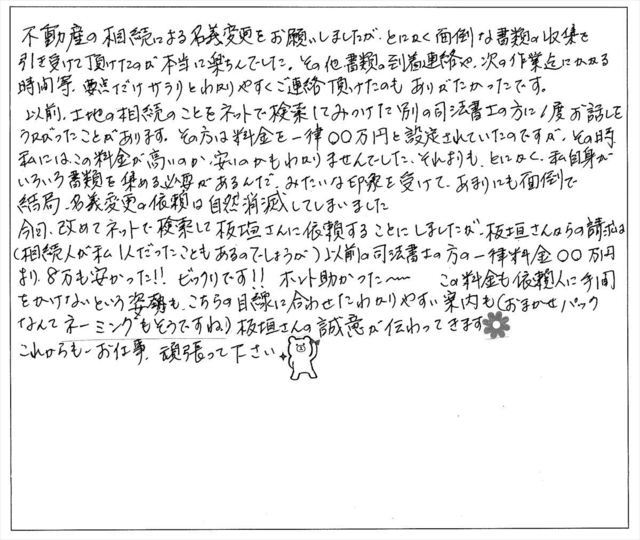 不動産の相続による名義変更をお願いしましたが、とにかく面倒な書類の収集を
引き受けて頂けたのが本当に楽ちんでした。その他書類の到着連絡や、次の作業迄にかかる
時間等、要点だけサラリとわかりやすくご連絡頂けたのもありがたかったです。
以前、土地の相続のことをネットで検索してみつけた別の司法書士の方に1度お話しを
うかがったことがあります。その方は料金を一律〇〇万円と設定されていたのですが、その時
私にはこの料金が高いのか、安いのかもわかりませんでした。それよりも、とにかく、私自身が
いろいろ書類を集める必要があるんだ、みたいな印象を受けて、あまりにも面倒で
結局、名義変更の依頼は自然消滅してしまいました
今回、改めてネットで検索して板垣さんに依頼することにしましたが、板垣さんからの請求は
(相続人が私1人だったこともあるのでしょうが)以前の司法書士の方の一律料金〇〇万円
より、8万も安かった!! ビックリです!! ホント助かった〜 この料金も依頼人に手間
をかけないという姿勢も、こちらの目線に合わせたわかりやすい案内も(おまかせパック
なんてネーミングもそうですね)板垣さんの誠意が伝わってきます
これからもお仕事、頑張って下さい